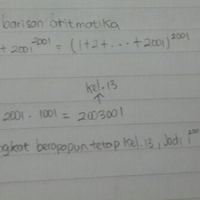 barisan aritmatika
+ 2001²⁰⁰¹ = (1+2+...+2001)²⁰⁰¹
kel. 13
↑
2001 . 1001 = 2003001
ngkat berapapun tetap kel. 13, Jadi i